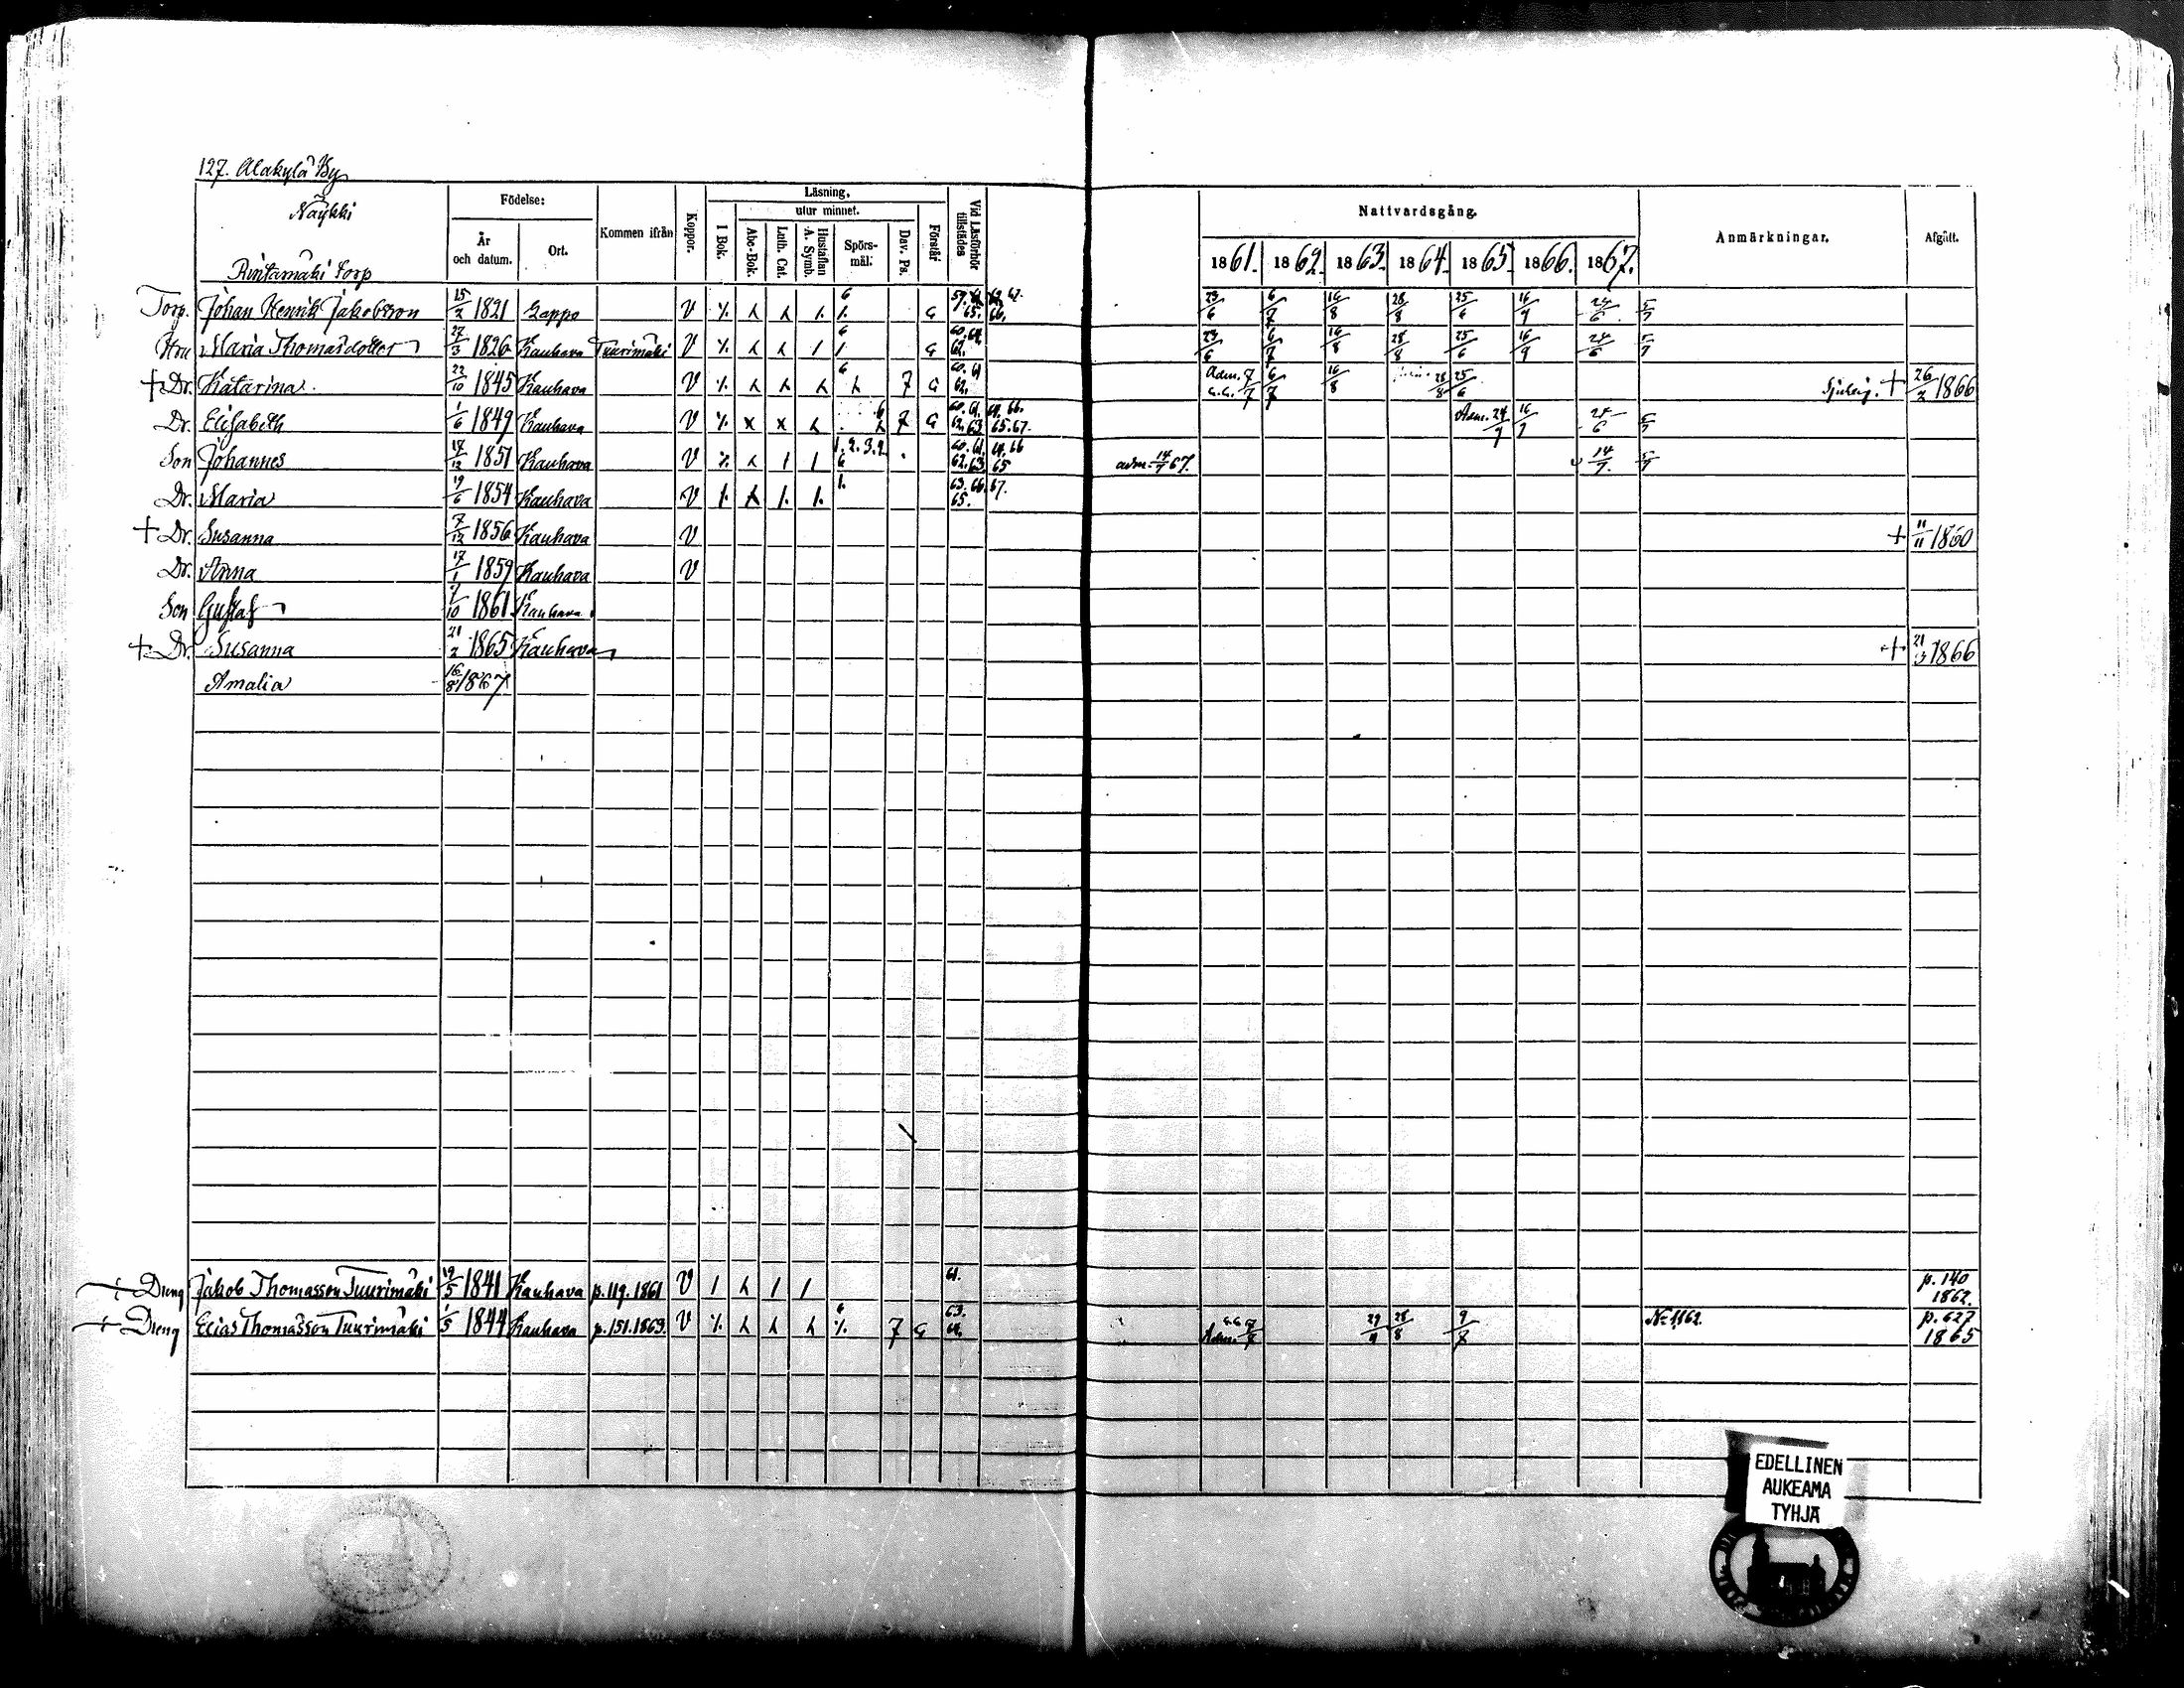 127. Alakylä By
Näykki
Rintamäki Torp
Födelse:
År och datum.
Ort.
Kommen ifrån
Koppor.
Läsning.
I Bok.
utur minnet.
Abc-Bok.
Luth. Cat.
Hustaflan A. Symb.
Spörs-mål:
Dav. Ps.
Förstår
Vid Läsförhör tillstädes
Nattvardsgång.
1861. 1862. 1863. 1864. 1865. 1866. 1867.
Anmärkningar.
Afgått.
Torp. Johan Henrik Jakobsson 15/2 1821 Lappo V 6 G 65. 66. 23/6 6/7 16/8 28/8 25/6 16/9 24/6 5/7
Hru Maria Thomasdotter 27/3 1826 Kauhava Tuurimäki V 6 G 60. 64. 62. 23/6 6/7 16/8 28/8 25/6 16/9 24/6 5/7
+ Dr. Katarina. 22/10 1845 Kauhava V 6 7 G 60. 61 62. Adm. 7/7 6/7 16/8 28/8 25/6 + 26/2 1866
Dr. Elisabeth 1/6 1849 Kauhava V x x 6 7 G 60. 61. 62. 63 64. 66. 65. 67. Adm. 24/9 16/9 24/6 5/7
Son Johannes 17/12 1851 Kauhava V 1 1 1. 2. 3. 6 60. 61. 62. 63. 64. 66 65 adm. 14/7 67. 14/7. 5/7
Dr. Maria 19/6 1854 Kauhava V 1. 1. 1. 1. 63. 66. 67. 65.
+ Dr. Susanna 7/12 1856 Kauhava V + 11/11 1860
Dr. Anna 17/1 1859 Kauhava V
Son Gustaf /10 1861 Kauhava
+ Dr Susanna 21/2 1865 Kauhava + 21/3 1866
Amalia 16/8 1867
+ Dreng Jakob Thomasson Tuurimäki 19/5 1841 Kauhava p. 119. 1861 V 1 1 1 61. p. 140 1862.
+ Dreng Elias Thomasson Tuurimäki 1/5 1844 Kauhava p. 151. 1863. V 6 7 G 63. 64. Adm. 7/7 29/9 28/8 9/7 No 1,162. p. 627 1865
EDELLINEN
AUKEAMA
TYHJÄ